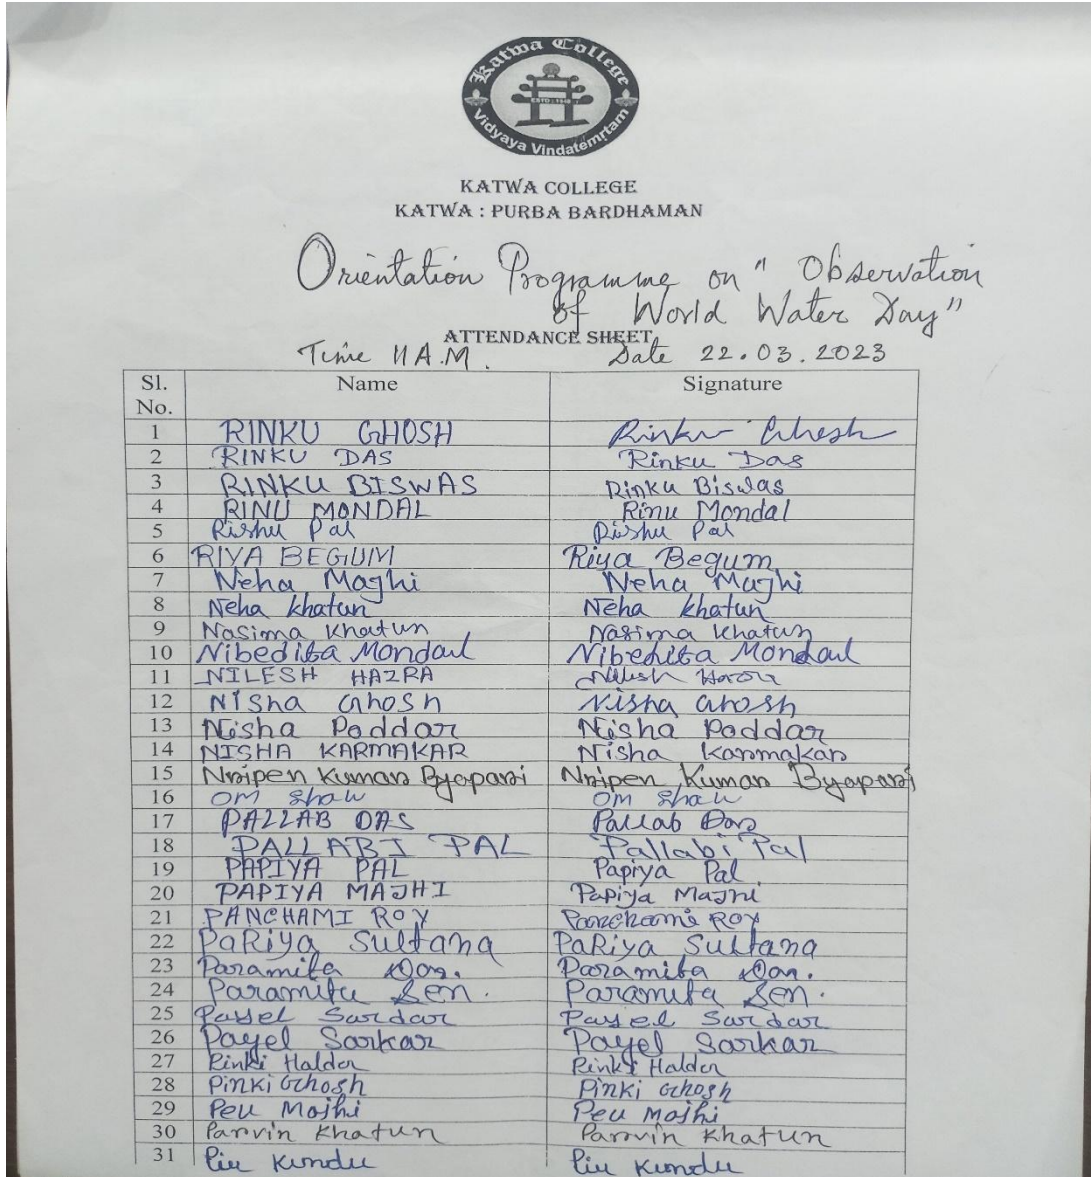 Katwa College
ESTD : 1948
Vidyaya Vindatemrtam
KATWA COLLEGE
KATWA : PURBA BARDHAMAN
Orientation Programme on " Observation
of World Water Day"
ATTENDANCE SHEET
Time 11 A.M. Date 22.03.2023
Sl. No. Name Signature
1 RINKU GHOSH Rinku Ghosh
2 RINKU DAS Rinku Das
3 RINKU BISWAS Rinku Biswas
4 RINU MONDAL Rinu Mondal
5 Rishu Pal Rishu Pal
6 RIYA BEGUM Riya Begum
7 Neha Maghi Neha Maghi
8 Neha khatun Neha khatun
9 Nasima Khatun Nasima Khatun
10 Nibedita Mondal Nibedita Mondal
11 NILESH HAZRA Nilesh Hazra
12 Nisha Ghosh Nisha Ghosh
13 Nisha Poddar Nisha Poddar
14 NISHA KARMAKAR Nisha Karmakar
15 Nripen Kumar Byapari Nripen Kumar Byapari
16 OM Shaw OM Shaw
17 PALLAB DAS Pallab Das
18 PALLABI PAL Pallabi Pal
19 PAPIYA PAL Papiya Pal
20 PAPIYA MAJHI Papiya Majhi
21 PANCHAMI ROY Panchami Roy
22 PaRiya Sultana PaRiya Sultana
23 Paramita Paramita
24 Paramita Sen. Paramita Sen.
25 Payel Sardar Payel Sardar
26 Payel Sarkar Payel Sarkar
27 Rinki Halder Rinki Halder
28 Pinki Ghosh Pinki Ghosh
29 Peu Majhi Peu Majhi
30 Parvin Khatun Parvin Khatun
31 Piu Kundu Piu Kundu